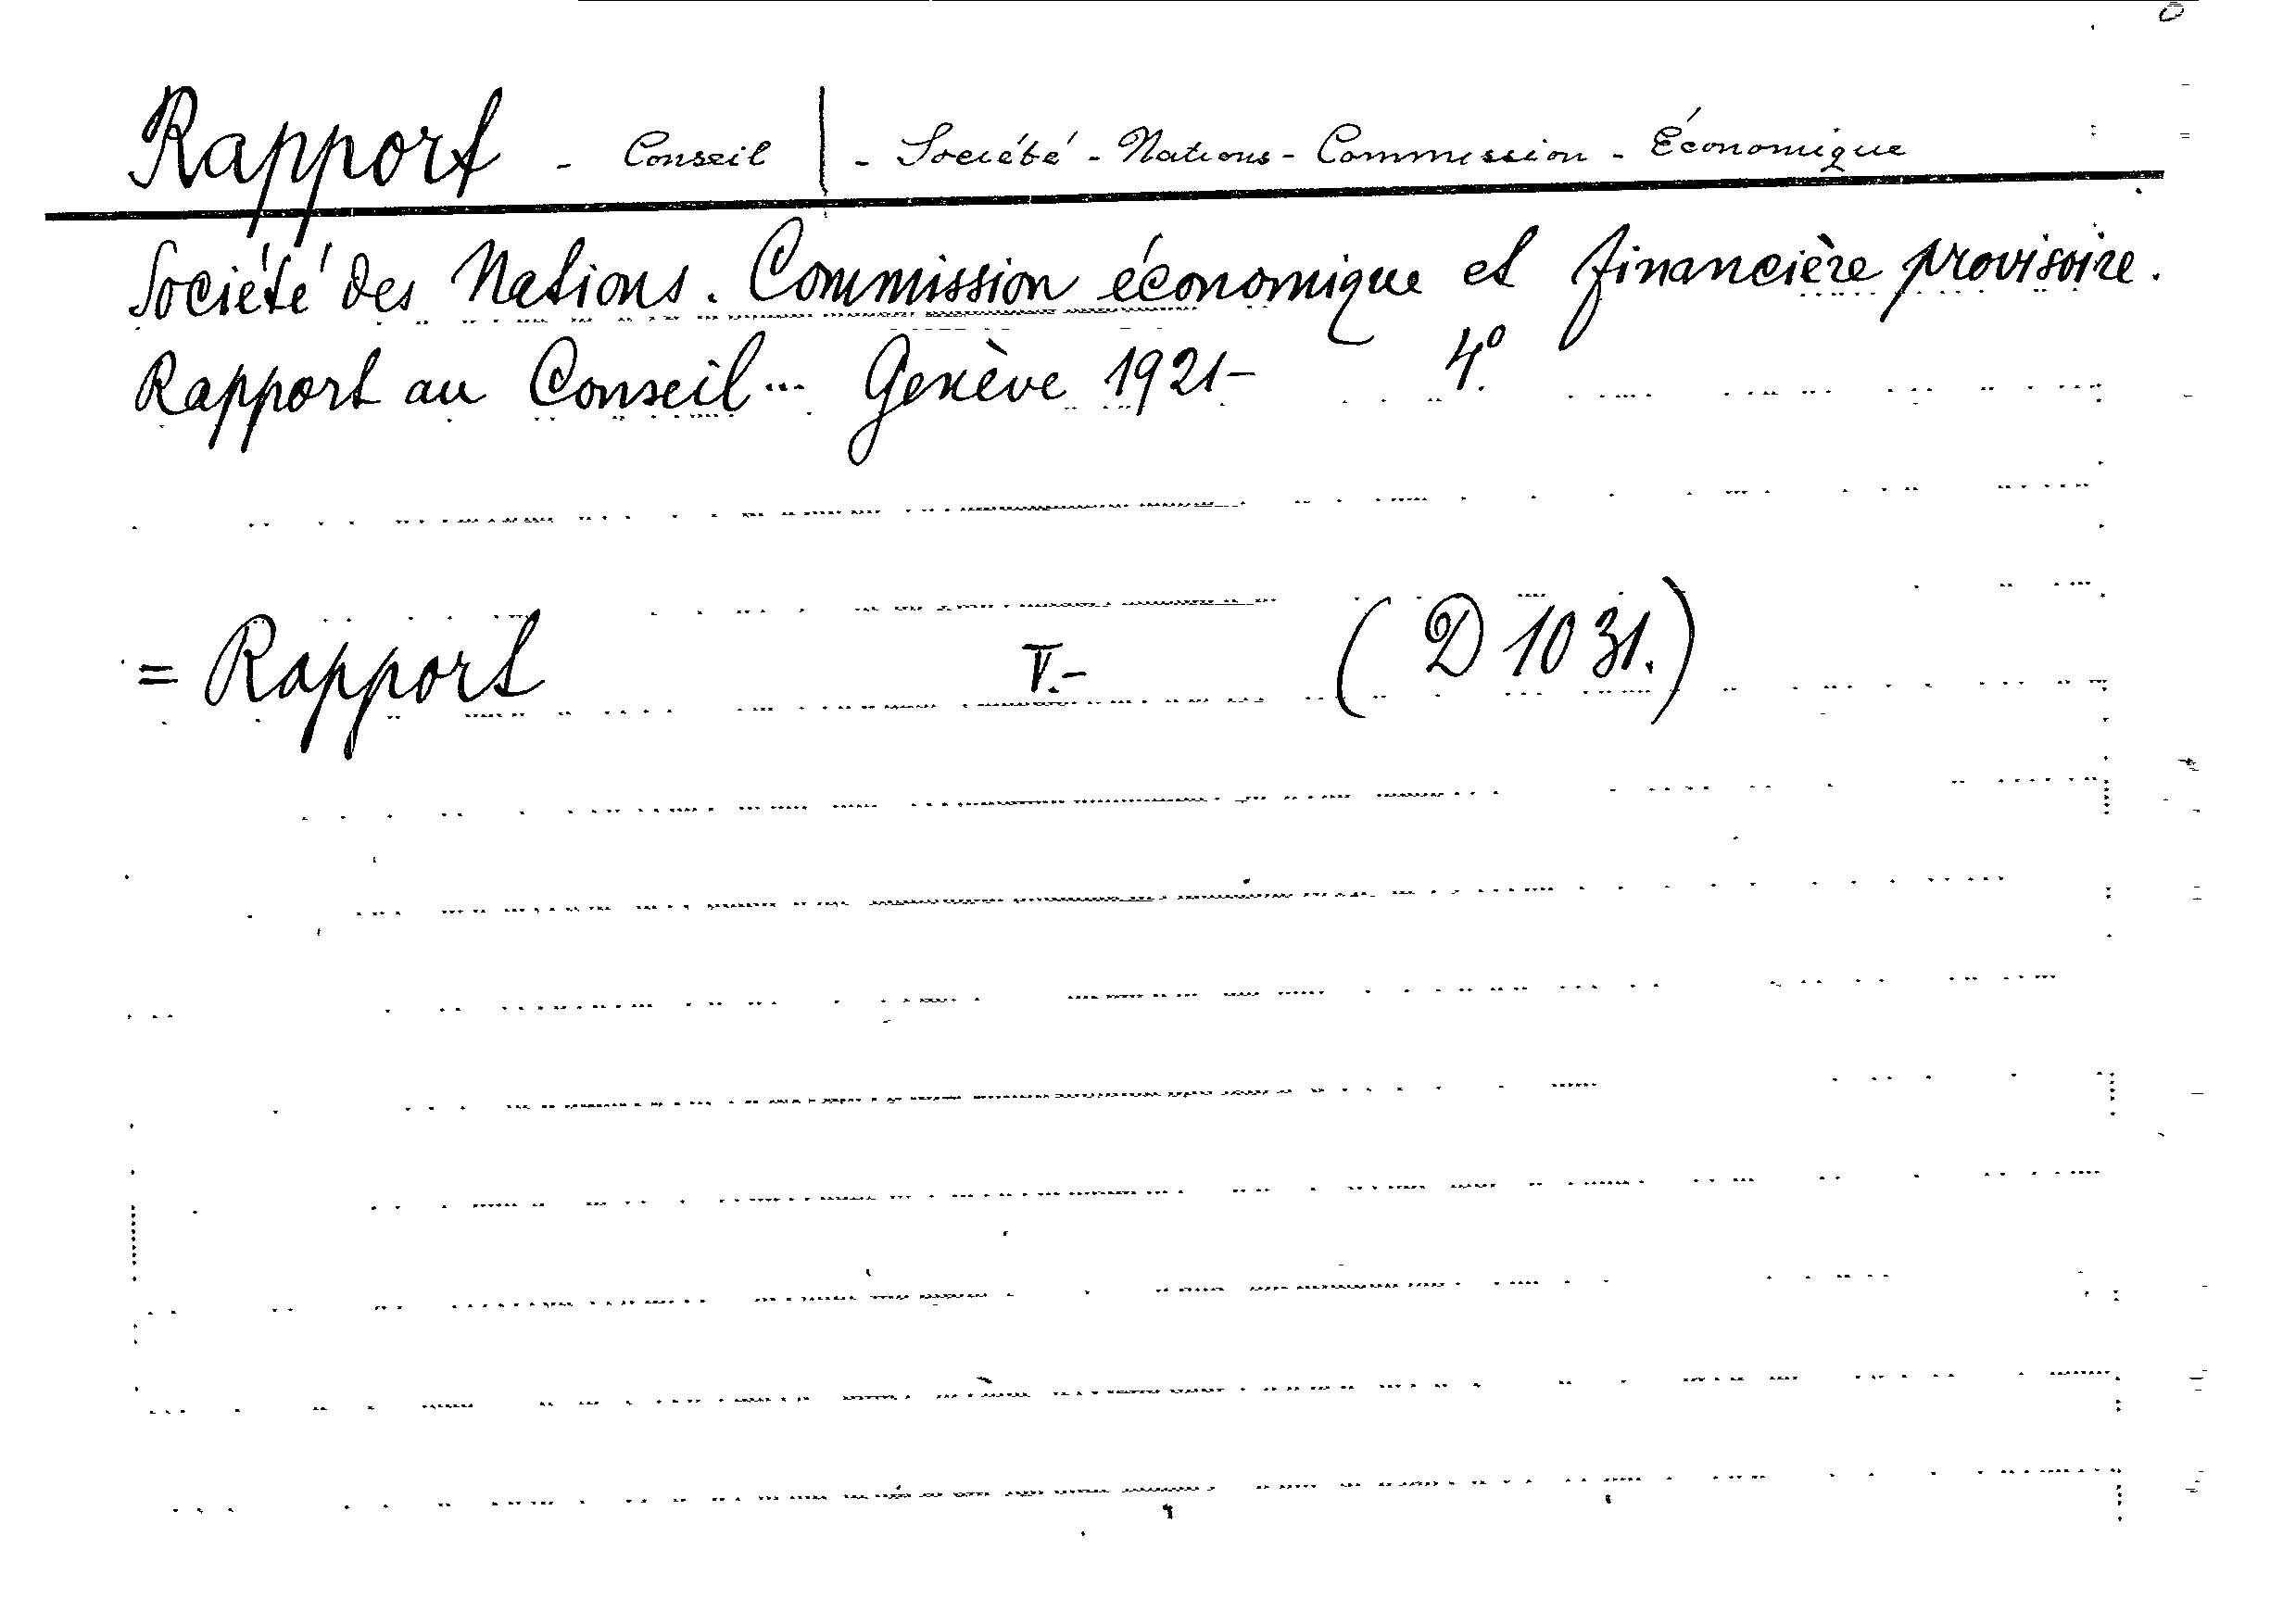 Rapport - Conseil | - Société - Nations - Commission - Économique
Société des Nations. Commission économique et financière provisoire.
Rapport au Conseil... Genève 1921- 4º.
= Rapport V.- (D 1031.)